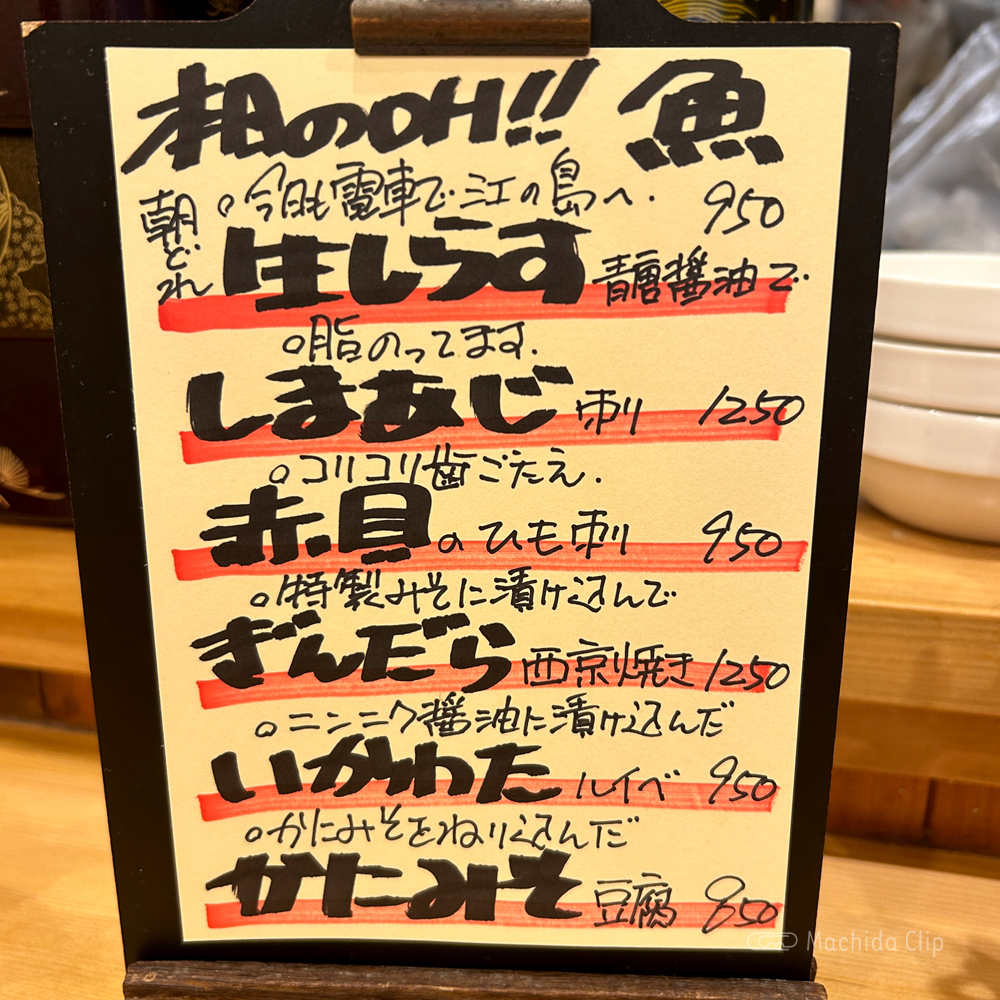 本日のOH!! 魚
○今日も電車で江の島へ. 950
朝どれ 生しらす 青唐醤油で
○脂のってます.
しまあじ 刺 1250
○コリコリ歯ごたえ.
赤貝のひも刺 950
○特製みそに漬け込んで
ぎんだら西京焼き 1250
○ニンニク醤油に漬け込んだ
いかわた ルイベ 950
○かにみそをねり込んだ
かにみそ 豆腐 850
Machida Clip